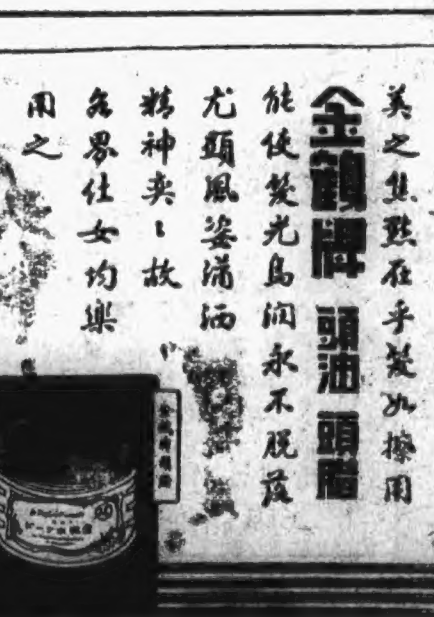 美之焦點在乎髮如搽用
金鶴牌 頭油 頭腊
能使髮光烏润永不脫落
尤顯風姿瀟洒
精神奕〻故
各界仕女均樂
用之